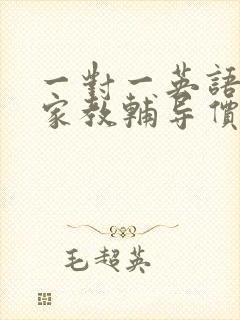 一對一英語
家教輔导價
毛超英